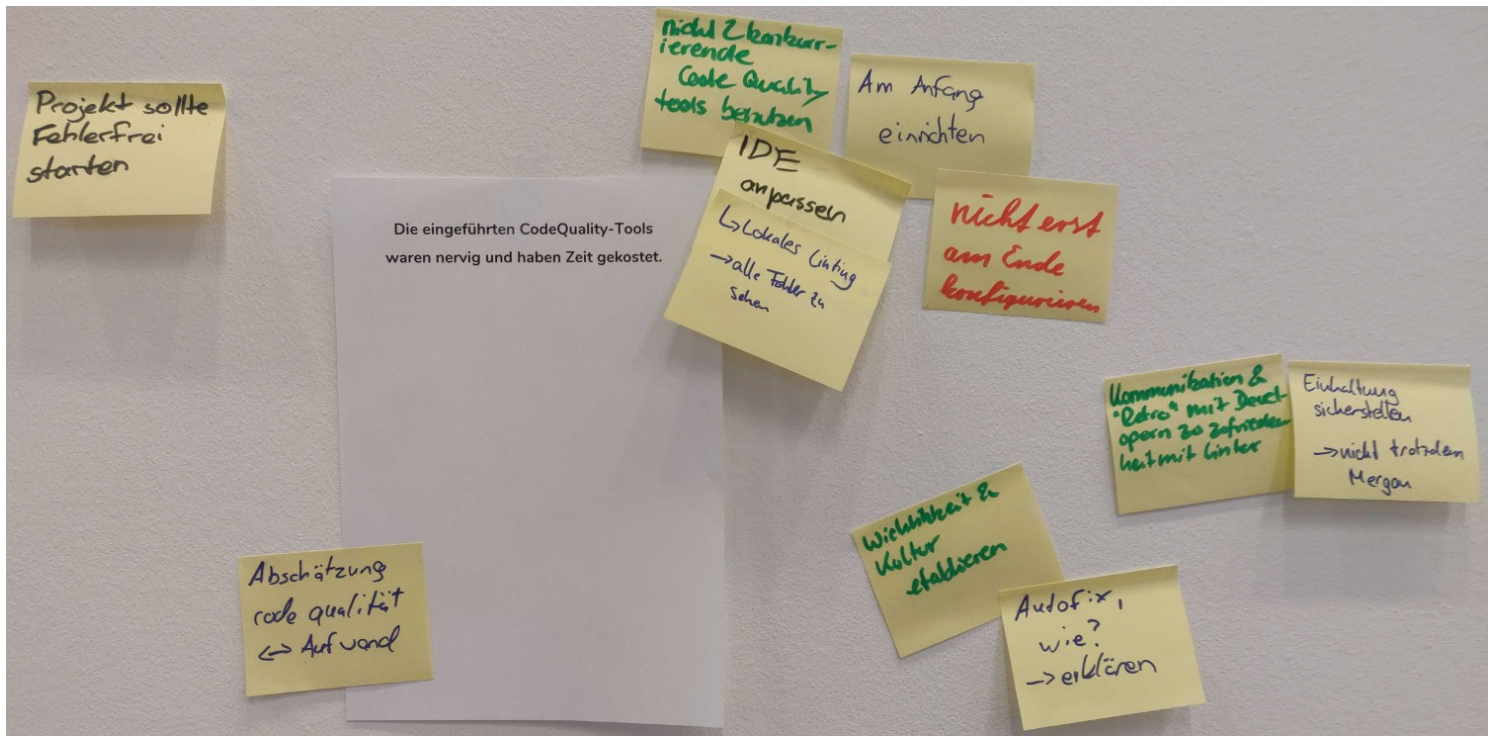 Projekt sollte
Fehlerfrei
starten
Die eingeführten CodeQuality-Tools
waren nervig und haben Zeit gekostet.
nicht 2 konkurr-
ierende
Code Quality
tools benutzen
Am Anfang
einrichten
IDE
anpassen
↳ Lokales Linting
→ alle Fehler zu
sehen
nicht erst
am Ende
konfigurieren
Kommunikation &
"Retro" mit Devel-
opern zu zufrieden-
heit mit Linter
Einhaltung
sicherstellen
→ nicht trotzdem
Mergen
Wichtigkeit &
Kultur
etablieren
Autofix,
wie?
→ erklären
Abschätzung
code qualität
↔ Aufwand